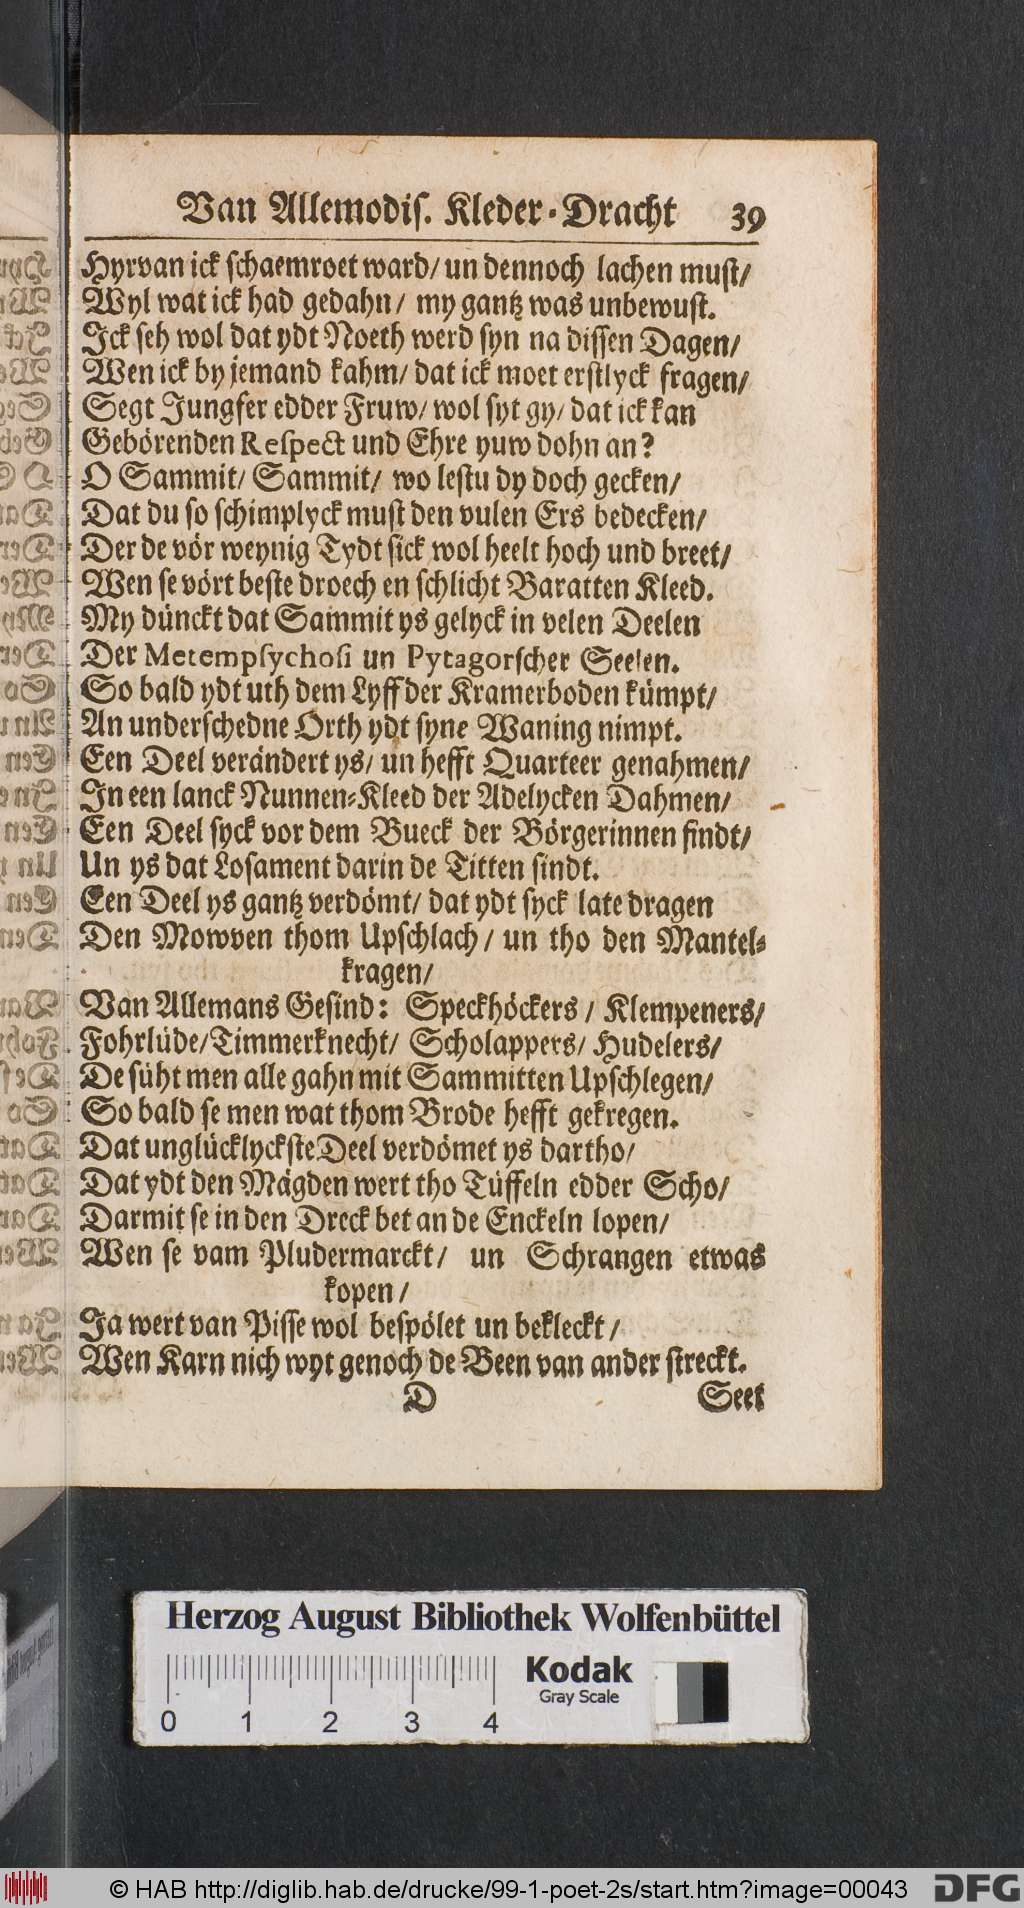 Van Allemodis. Kleder-Dracht 39
Hyrvan ick schaemroet ward/ un dennoch lachen must/
Wyl wat ick had gedahn/ my gantz was unbewust.
Ick seh wol dat ydt Noeth werd syn na dissen Dagen/
Wen ick by jemand kahm/ dat ick moet erstlyck fragen/
Segt Jungfer edder Fruw/ wol syt gy/ dat ick kan
Gebörenden Respect und Ehre yuw dohn an?
O Sammit/ Sammit/ wo lestu dy doch gecken/
Dat du so schimplyck must den vulen Ers bedecken/
Der de vör weynig Tydt sick wol heelt hoch und breet/
Wen se vört beste droech en schlicht Baratten Kleed.
My dünckt dat Sammit ys gelyck in velen Deelen
Der Metempsychosi un Pytagorscher Seelen.
So bald ydt uth dem Lyff der Kramerboden kümpt/
An underschedne Orth ydt syne Waning nimpt.
Een Deel verändert ys/ un hefft Quarteer genahmen/
In een lanck Nunnen-Kleed der Adelycken Dahmen/
Een Deel syck vor dem Bueck der Börgerinnen findt/
Un ys dat Losament darin de Titten sindt.
Een Deel ys gantz verdömt/ dat ydt syck late dragen
Den Mowven thom Upschlach/ un tho den Mantel-
kragen/
Van Allemans Gesind: Speckhöckers/ Klempeners/
Fohrlüde/ Timmerknecht/ Scholappers/ Hudelers/
De süht men alle gahn mit Sammitten Upschlegen/
So bald se men wat thom Brode hefft gekregen.
Dat unglücklyckste Deel verdömet ys dartho/
Dat ydt den Mägden wert tho Tüffeln edder Scho/
Darmit se in den Dreck bet an de Enckeln lopen/
Wen se vam Pludermarckt/ un Schrangen etwas
kopen/
Ja wert van Pisse wol bespölet un bekleckt/
Wen Karn nich wyt genoch de Been van ander streckt.
D Seet
Herzog August Bibliothek Wolfenbüttel
Kodak
Gray Scale
0 1 2 3 4
© HAB http://diglib.hab.de/drucke/99-1-poet-2s/start.htm?image=00043 DFG